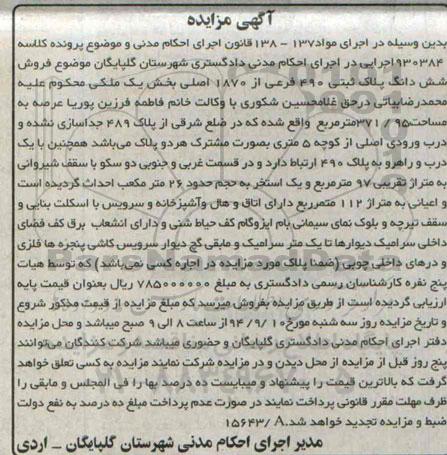 آگهی مزایده
بدین وسیله در اجرای مواد ۱۳۷ - ۱۳۸ قانون اجرای احکام مدنی و موضوع پرونده کلاسه
۹۳۰۳۸۴ اجرایی در اجرای احکام مدنی دادگستری شهرستان گلپایگان موضوع فروش
شش دانگ پلاک ثبتی ۴۹۰ فرعی از ۱۸۷۰ اصلی بخش یک ملکی محکوم علیه
محمدرضا بیاتی درحق غلامحسین شکوری با وکالت خانم فاطمه فرزین پوریا عرصه به
مساحت ۳۷۱/۹۵ مترمربع واقع شده که در ضلع شرقی از پلاک ۴۸۹ جداسازی نشده و
درب ورودی اصلی از کوچه ۵ متری بصورت مشترک هردو پلاک می‌باشد همچنین با یک
درب و راهرو به پلاک ۴۹۰ ارتباط دارد و در قسمت غربی و جنوبی دو سکو با سقف شیروانی
به متراژ تقریبی ۹۷ مترمربع و یک استخر به حجم حدود ۲۶ متر مکعب احداث گردیده است
و اعیانی به متراژ ۱۱۲ متمربع دارای اتاق و هال وآشپزخانه و سرویس با اسکلت بنایی و
سقف تیرچه و بلوک نمای سیمانی بام ایزوگام کف حیاط شنی و دارای انشعاب برق کف فضای
داخلی سرامیک دیوارها تا یک متر سرامیک و مابقی گچ دیوار سرویس کاشی پنجره ها فلزی
و درهای داخلی چوبی (ضمنا پلاک مورد مزایده در اجاره کسی نمی‌باشد) که توسط هیات
پنج نفره کارشناسان رسمی دادگستری به مبلغ ۷۸۵۰۰۰۰۰۰۰ ریال بعنوان قیمت پایه
ارزیابی گردیده است از طریق مزایده بفروش میرسد که مبلغ مزایده از قیمت مذکور شروع
و تاریخ مزایده روز سه شنبه مورخ ۹۴/۹/۱۰ از ساعت ۸ الی ۹ صبح میباشد و محل مزایده
دفتر اجرای احکام مدنی دادگستری گلپایگان و حضوری میباشد شرکت کنندگان می‌توانند
پنج روز قبل از مزایده از محل دیدن و در مزایده شرکت نمایند مزایده به کسی تعلق خواهد
گرفت که بالاترین قیمت را پیشنهاد و میبایست ده درصد بها را فی المجلس و مابقی را
ظرف مهلت مقرر قانونی پرداخت نمایند در صورت عدم پرداخت مبلغ ده درصد به نفع دولت
ضبط و مزایده تجدید خواهد شد.۱۵۶۴۳/A
مدیر اجرای احکام مدنی شهرستان گلپایگان - اردی